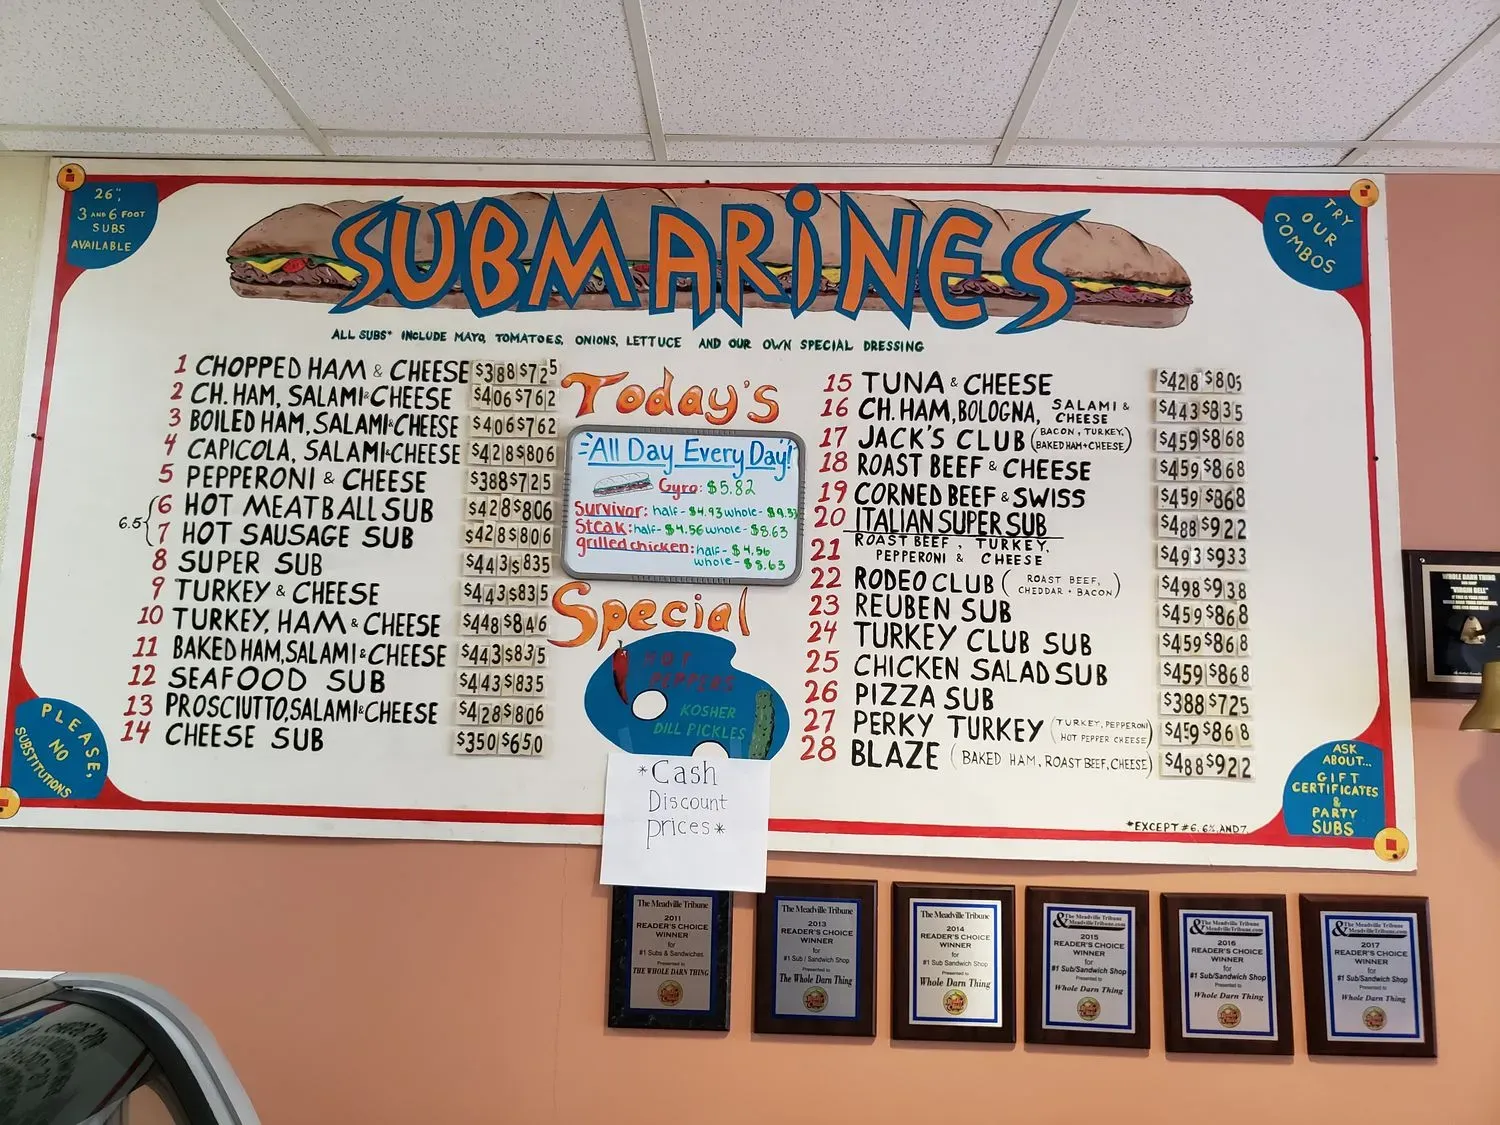 26",
3 AND 6 FOOT
SUBS
AVAILABLE
SUBMARINES
TRY
OUR
COMBOS
ALL SUBS* INCLUDE MAYO, TOMATOES, ONIONS, LETTUCE AND OUR OWN SPECIAL DRESSING
1 CHOPPED HAM & CHEESE $388 $725
2 CH. HAM, SALAMI & CHEESE $406 $762
3 BOILED HAM, SALAMI & CHEESE $406 $762
4 CAPICOLA, SALAMI & CHEESE $428 $806
5 PEPPERONI & CHEESE $388 $725
6.5 {
6 HOT MEATBALL SUB $428 $806
7 HOT SAUSAGE SUB $428 $806
8 SUPER SUB $443 $835
9 TURKEY & CHEESE $443 $835
10 TURKEY, HAM & CHEESE $448 $846
11 BAKED HAM, SALAMI & CHEESE $443 $835
12 SEAFOOD SUB $443 $835
13 PROSCIUTTO, SALAMI & CHEESE $428 $806
14 CHEESE SUB $350 $650
PLEASE,
NO
SUBSTITUTIONS
Today's
All Day Every Day!
Gyro: $5.82
Survivor: half - $4.93 whole - $9.33
Steak: half - $4.56 whole - $8.63
grilled chicken: half - $4.56
whole - $8.63
Special
HOT
PEPPERS
KOSHER
DILL PICKLES
*Cash
Discount
prices*
15 TUNA & CHEESE $428 $805
16 CH. HAM, BOLOGNA, SALAMI & CHEESE $443 $835
17 JACK'S CLUB (BACON, TURKEY, BAKED HAM + CHEESE) $459 $868
18 ROAST BEEF & CHEESE $459 $868
19 CORNED BEEF & SWISS $459 $868
20 ITALIAN SUPER SUB $488 $922
21 ROAST BEEF, TURKEY, PEPPERONI & CHEESE $493 $933
22 RODEO CLUB (ROAST BEEF, CHEDDAR + BACON) $498 $938
23 REUBEN SUB $459 $868
24 TURKEY CLUB SUB $459 $868
25 CHICKEN SALAD SUB $459 $868
26 PIZZA SUB $388 $725
27 PERKY TURKEY (TURKEY, PEPPERONI HOT PEPPER CHEESE) $459 $868
28 BLAZE (BAKED HAM, ROAST BEEF, CHEESE) $488 $922
*EXCEPT #6, 6½, AND 7
ASK
ABOUT...
GIFT
CERTIFICATES
&
PARTY
SUBS
WHOLE DARN THING
"VIRGIN BELL"
The Meadville Tribune
2011
READER'S CHOICE
WINNER
for
#1 Subs & Sandwiches
Presented to
THE WHOLE DARN THING
The Meadville Tribune
2013
READER'S CHOICE
WINNER
for
#1 Sub / Sandwich Shop
Presented to
The Whole Darn Thing
The Meadville Tribune
2014
READER'S CHOICE
WINNER
for
#1 Sub/Sandwich Shop
Presented to
Whole Darn Thing
The Meadville Tribune
& MeadvilleTribune.com
2015
READER'S CHOICE
WINNER
for
#1 Sub/Sandwich Shop
Presented to
Whole Darn Thing
The Meadville Tribune
& MeadvilleTribune.com
2016
READER'S CHOICE
WINNER
for
#1 Sub/Sandwich Shop
Presented to
Whole Darn Thing
The Meadville Tribune
& MeadvilleTribune.com
2017
READER'S CHOICE
WINNER
for
#1 Sub/Sandwich Shop
Presented to
Whole Darn Thing